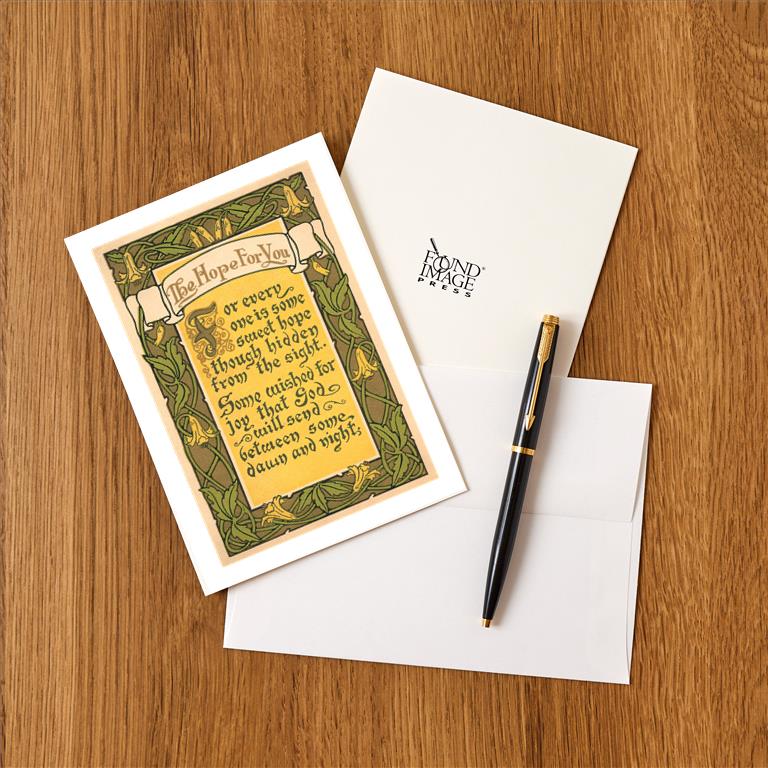 The Hope For You
For every
one is some
sweet hope
though hidden
from the sight.
Some wished for
joy that God
will send
between some
dawn and night;
FOUND
IMAGE
PRESS